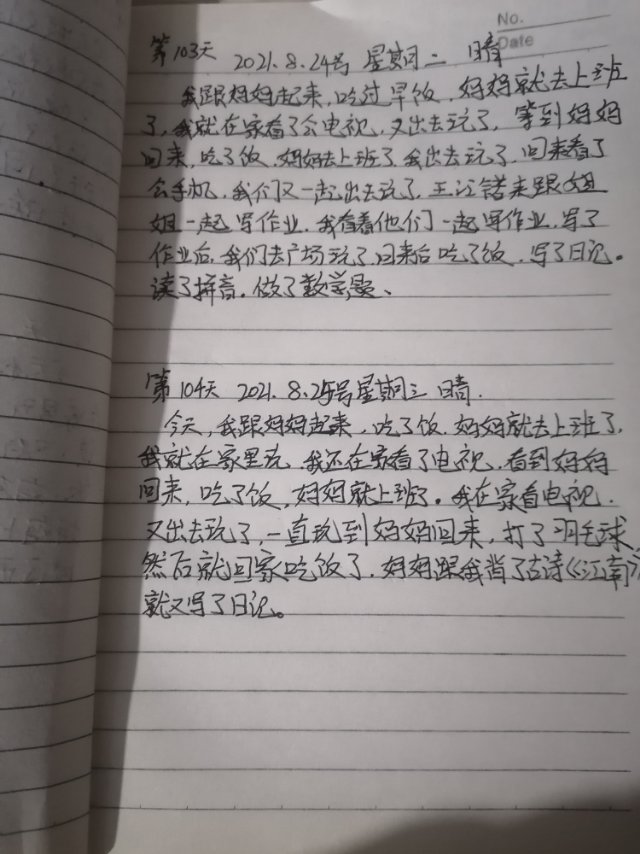 No.
Date
第103天 2021.8.24号 星期二 晴
我跟妈妈起来，吃过早饭，妈妈就去上班
了，我就在家看了会电视，又出去玩了，等到妈妈
回来，吃了饭，妈妈去上班了，我出去玩了，回来看了
会手机，我们又一起出去玩了，王江锴来跟姐
姐一起写作业，我看着他们一起写作业，写了
作业后，我们去广场玩了，回来后吃了饭，写了日记。
读了拼音，做了数学题、
第104天 2021.8.25号 星期三 晴.
今天，我跟妈妈起来，吃了饭，妈妈就去上班了，
我就在家里玩，我还在家看了电视，看到妈妈
回来，吃了饭，妈妈就上班了。我在家看电视.
又出去玩了，一直玩到妈妈回来，打了羽毛球
然后就回家吃饭了，妈妈跟我背了古诗《江南》
就又写了日记。